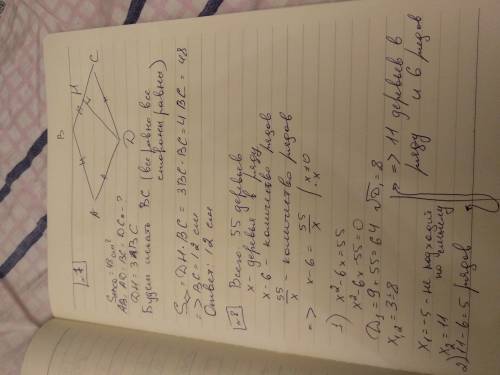 B
H
C
A
D
S ABCD = 48 см²
AB, AD, BC, DC - ?
DH = 3
Будем искать BC (все равно все
стороны равны)
S = DH·BC = 3BC·BC = 4BC = 48
=> BC = 12 см
Ответ 12 см
№8
Всего 55 деревьев
x - деревьев в ряду
x-6 - количество рядов
55/x = количество рядов
=> x-6 = 55/x | x≠0 ·x
1) x²-6x=55
x²-6x-55=0
D₁=9+55=64 √D₁=8
x₁,₂=3±8
x₁=-5 - не подходит
по смыслу
x₂=11
=> 11 деревьев в
ряду и 6 рядов
2) 11-6=5 рядов